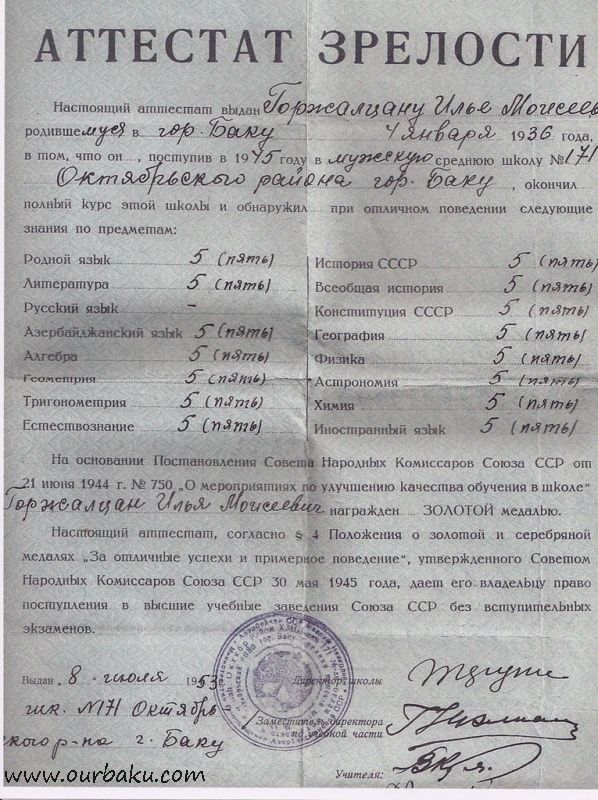 АТТЕСТАТ ЗРЕЛОСТИ
Настоящий аттестат выдан Горжалцану Илье Моисеев
родившемуся в гор. Баку 4 января 1936 года,
в том, что он, поступив в 1945 году в мужскую среднюю школу № 171
Октябрьского района гор. Баку, окончил
полный курс этой школы и обнаружил при отличном поведении следующие
знания по предметам:
Родной язык 5 (пять)
Литература 5 (пять)
Русский язык –
Азербайджанский язык 5 (пять)
Алгебра 5 (пять)
Геометрия 5 (пять)
Тригонометрия 5 (пять)
Естествознание 5 (пять)
История СССР 5 (пять)
Всеобщая история 5 (пять)
Конституция СССР 5 (пять)
География 5 (пять)
Физика 5 (пять)
Астрономия 5 (пять)
Химия 5 (пять)
Иностранный язык 5 (пять)
На основании Постановления Совета Народных Комиссаров Союза ССР от
21 июня 1944 г. № 750 „О мероприятиях по улучшению качества обучения в школе"
Горжалцан Илья Моисеевич награжден ЗОЛОТОЙ медалью.
Настоящий аттестат, согласно § 4 Положения о золотой и серебряной
медалях „За отличные успехи и примерное поведение", утвержденного Советом
Народных Комиссаров Союза ССР 30 мая 1945 года, дает его владельцу право
поступления в высшие учебные заведения Союза ССР без вступительных
экзаменов.
Выдан „8" июля 1953
Директор школы
шк. №171 Октябрь
Заместитель директора
по учебной части
ского р-на г. Баку
Учителя:
www.ourbaku.com